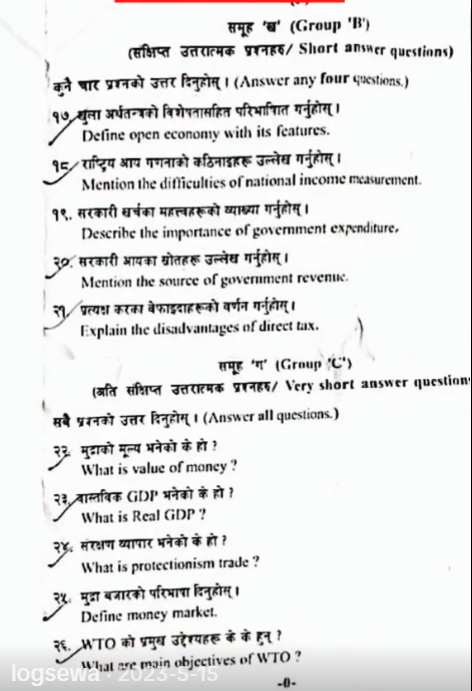 समूह 'ख' (Group 'B')
(संक्षिप्त उत्तरात्मक प्रश्नहरु/ Short answer questions)
कुनै चार प्रश्नको उत्तर दिनुहोस् । (Answer any four questions.)
१७. खुला अर्थतन्त्रको विशेषतासहित परिभाषित गर्नुहोस् ।
Define open economy with its features.
१८. राष्ट्रिय आय गणनाको कठिनाइहरू उल्लेख गर्नुहोस् ।
Mention the difficulties of national income measurement.
१९. सरकारी खर्चका महत्त्वहरूको व्याख्या गर्नुहोस् ।
Describe the importance of government expenditure.
२०. सरकारी आयका स्रोतहरू उल्लेख गर्नुहोस् ।
Mention the source of government revenue.
२१. प्रत्यक्ष करका बेफाइदाहरूको वर्णन गर्नुहोस् ।
Explain the disadvantages of direct tax.
समूह 'ग' (Group 'C')
(अति संक्षिप्त उत्तरात्मक प्रश्नहरु/ Very short answer question
सबै प्रश्नको उत्तर दिनुहोस् । (Answer all questions.)
२२. मुद्राको मूल्य भनेको के हो ?
What is value of money ?
२३. वास्तविक GDP भनेको के हो ?
What is Real GDP ?
२४. संरक्षण व्यापार भनेको के हो ?
What is protectionism trade ?
२५. मुद्रा बजारको परिभाषा दिनुहोस् ।
Define money market.
२६. WTO को प्रमुख उद्देश्यहरू के के हुन् ?
What are main objectives of WTO ?
logsewa · 2023-5-15
-0-